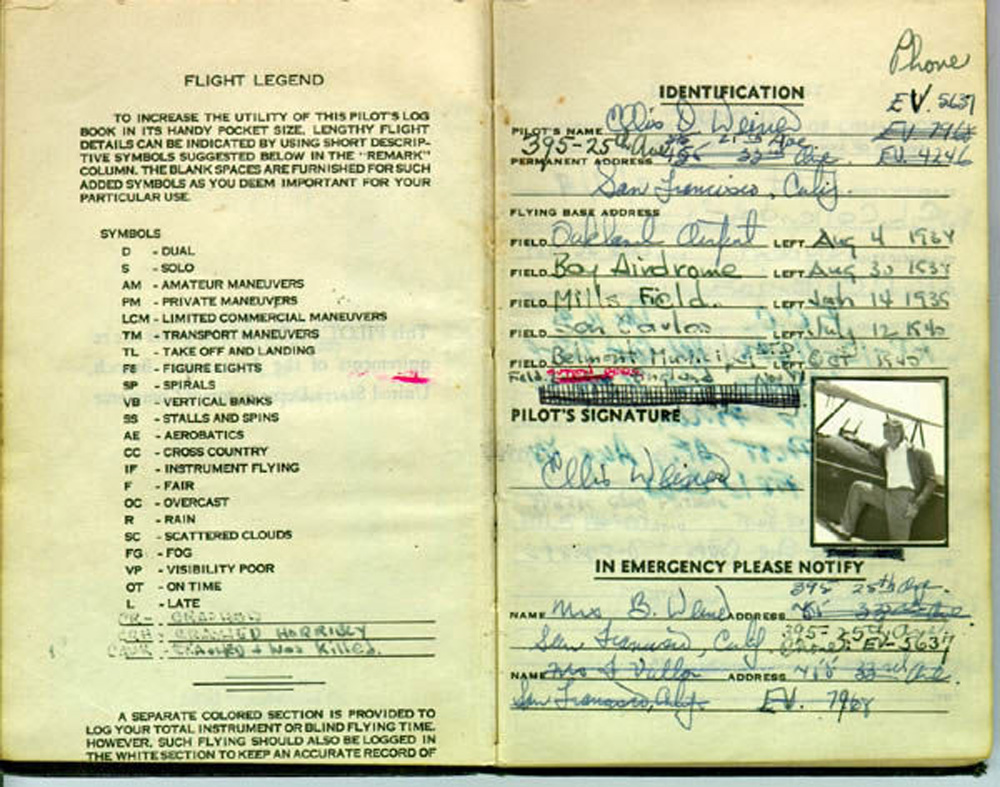 FLIGHT LEGEND
TO INCREASE THE UTILITY OF THIS PILOT'S LOG
BOOK IN ITS HANDY POCKET SIZE, LENGTHY FLIGHT
DETAILS CAN BE INDICATED BY USING SHORT DESCRIP-
TIVE SYMBOLS SUGGESTED BELOW IN THE "REMARK"
COLUMN. THE BLANK SPACES ARE FURNISHED FOR SUCH
ADDED SYMBOLS AS YOU DEEM IMPORTANT FOR YOUR
PARTICULAR USE.
SYMBOLS
D - DUAL
S - SOLO
AM - AMATEUR MANEUVERS
PM - PRIVATE MANEUVERS
LCM - LIMITED COMMERCIAL MANEUVERS
TM - TRANSPORT MANEUVERS
TL - TAKE OFF AND LANDING
F8 - FIGURE EIGHTS
SP - SPIRALS
VB - VERTICAL BANKS
SS - STALLS AND SPINS
AE - AEROBATICS
CC - CROSS COUNTRY
IF - INSTRUMENT FLYING
F - FAIR
OC - OVERCAST
R - RAIN
SC - SCATTERED CLOUDS
FG - FOG
VP - VISIBILITY POOR
OT - ON TIME
L - LATE
CR - CRASHED
CRH - CRASHED HORRIBLY
- CRASHED + Was Killed.
A SEPARATE COLORED SECTION IS PROVIDED TO
LOG YOUR TOTAL INSTRUMENT OR BLIND FLYING TIME.
HOWEVER, SUCH FLYING SHOULD ALSO BE LOGGED IN
THE WHITE SECTION TO KEEP AN ACCURATE RECORD OF
Phone
IDENTIFICATION
EV. 5637
PILOT'S NAME Ellis D Weiner
EV. 7968
395-25th Ave
PERMANENT ADDRESS
EV. 4246
San Francisco, Calif.
FLYING BASE ADDRESS
FIELD Oakland Airport LEFT Aug 4 1934
FIELD Bay Airdrome LEFT Aug 30 1934
FIELD Mills Field. LEFT Jan 14 1935
FIELD San Carlos LEFT July 12 1940
FIELD Belmont LEFT Oct 1940
Field. England
PILOT'S SIGNATURE
Ellis Weiner
IN EMERGENCY PLEASE NOTIFY
395 25th Ave.
NAME Mrs B. Weiner ADDRESS
San Francisco, Calif 395-25th Ave
Phone: EV-5637
NAME Mrs ADDRESS 418 33rd Ave.
San Francisco, Calif. EV. 7968